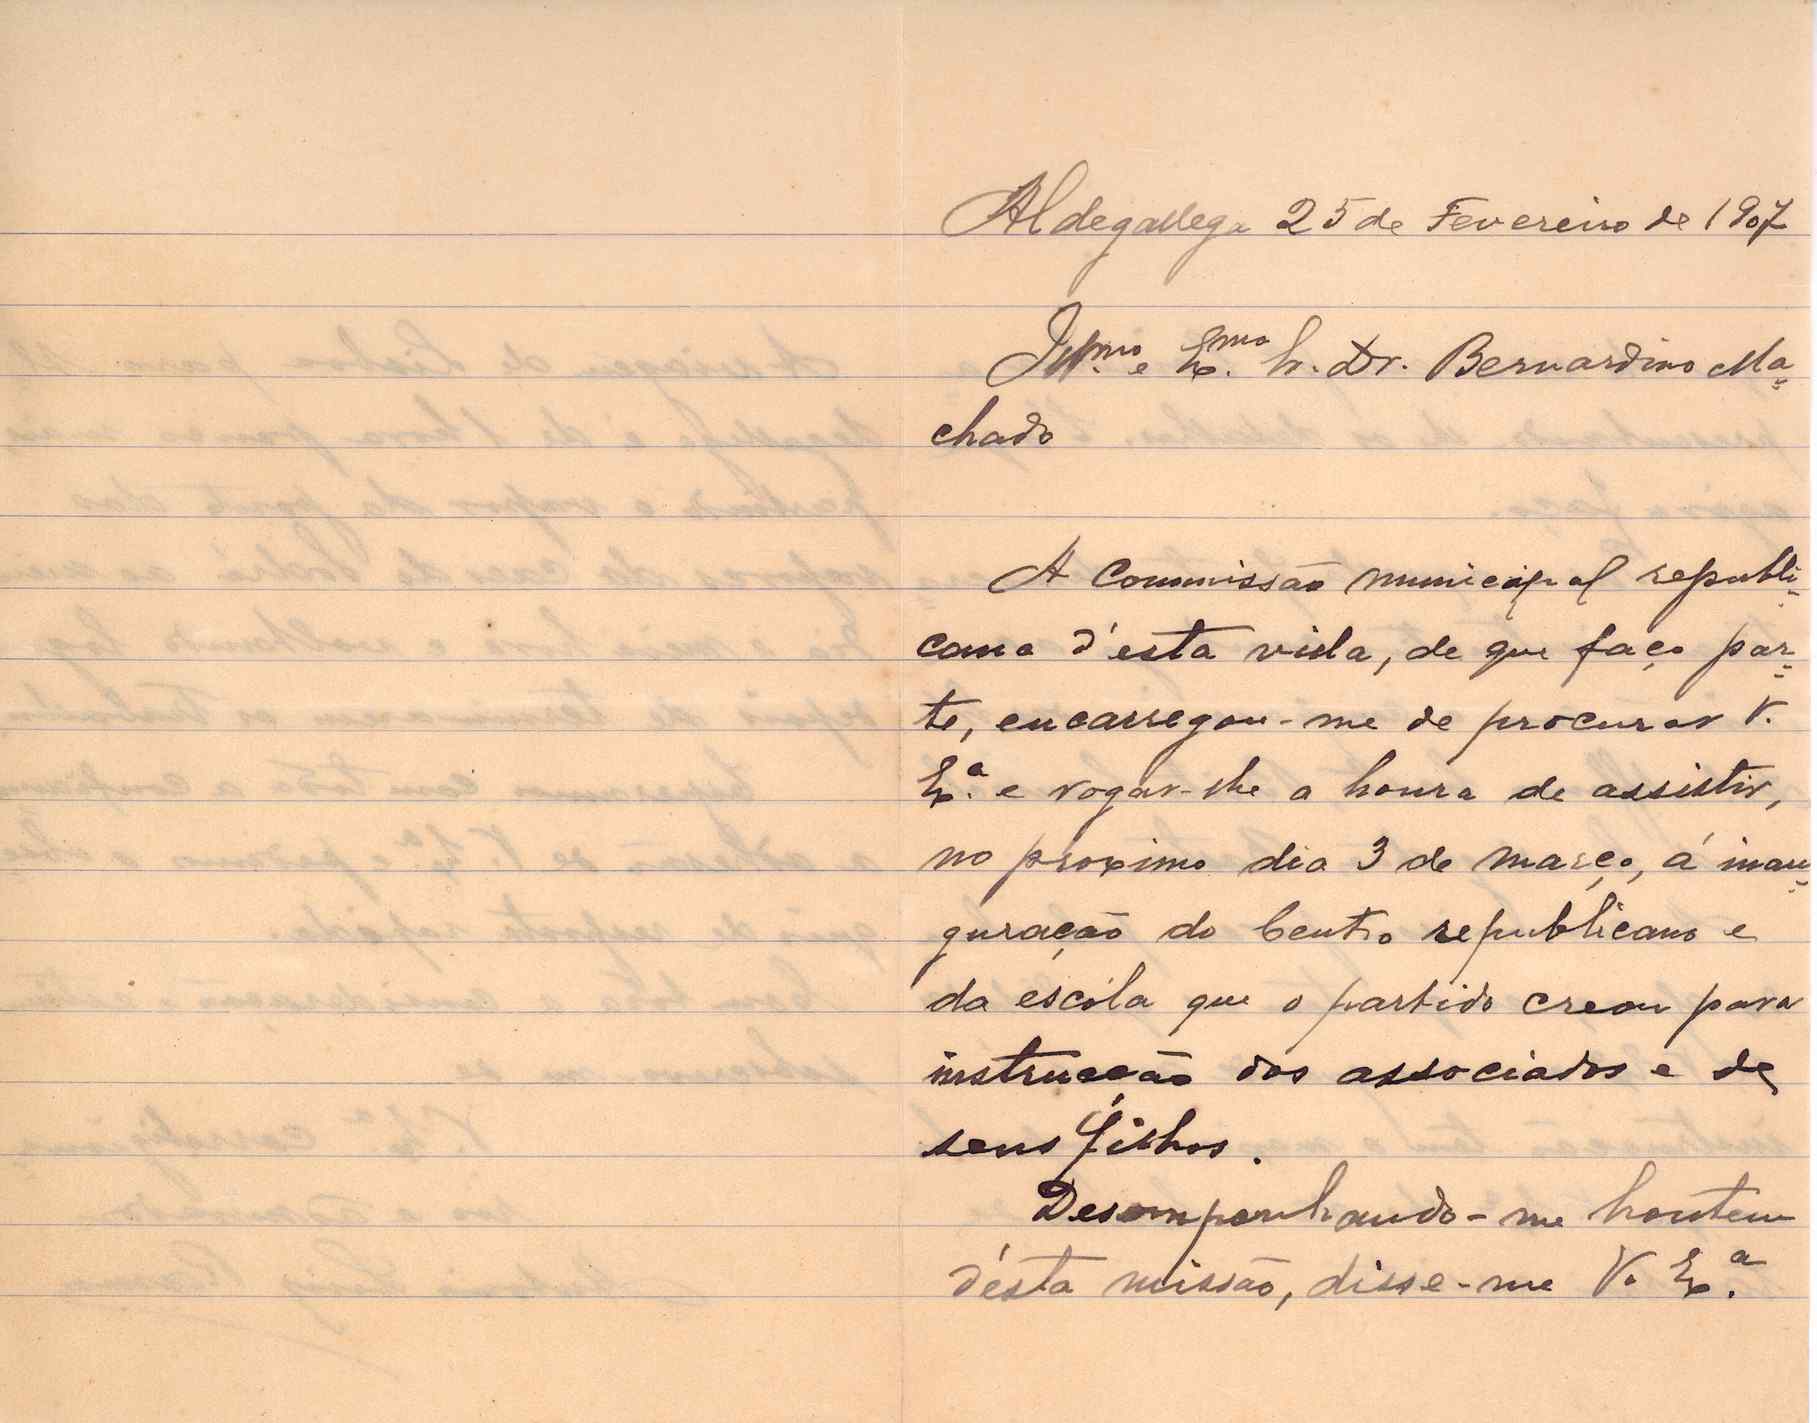 Aldegallega 25 de Fevereiro de 1907
Ill.mo e Ex.mo Sr. Dr. Bernardino Ma-
chado
A Commissão municipal republi-
cana d'esta villa, de que faço par-
te, encarregou-me de procurar V.
Ex.a e rogar-lhe a honra de assistir,
no proximo dia 3 de março, á inau-
guração do Centro republicano e
da escóla que o partido creou para
instrucção dos associados e de
seus filhos.
Desempenhando-me hontem
d'ésta missão, disse-me V. Ex.a